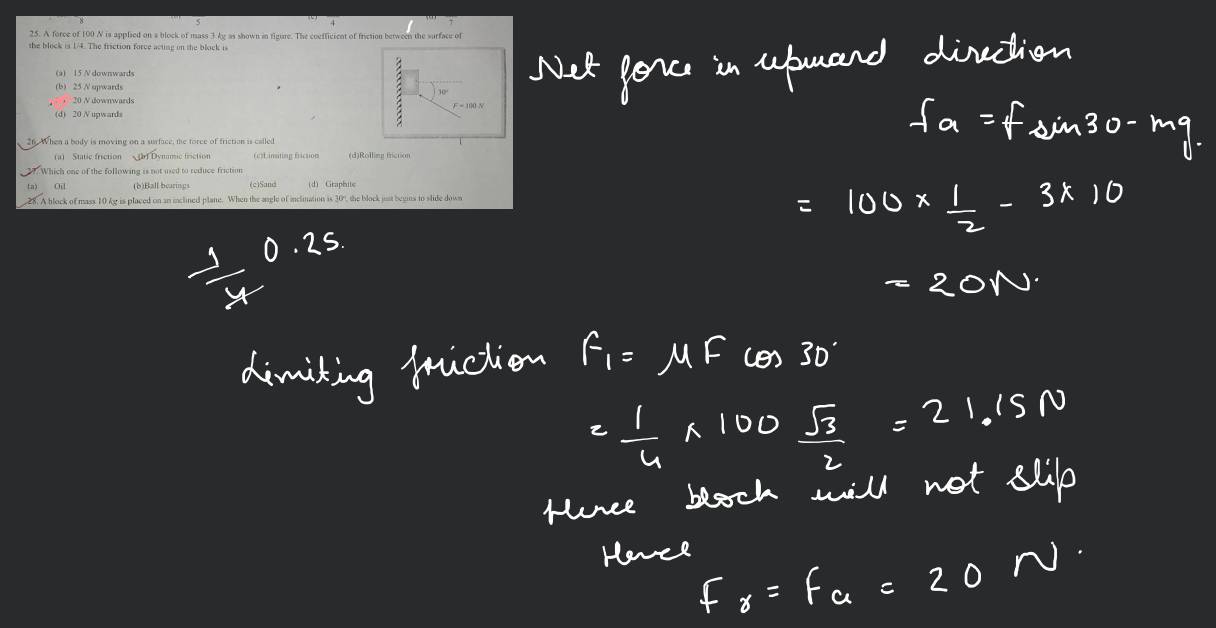 8 5 (c) 4 (d) 7
25. A force of 100 N is applied on a block of mass 3 kg as shown in figure. The coefficient of friction between the surface of
the block is 1/4. The friction force acting on the block is
(a) 15 N downwards
(b) 25 N upwards
20 N downwards
(d) 20 N upwards
30°
F = 100 N
26. When a body is moving on a surface, the force of friction is called
(a) Static friction (b) Dynamic friction (c)Limiting friction (d)Rolling friction
27. Which one of the following is not used to reduce friction
(a) Oil (b)Ball bearings (c)Sand (d) Graphite
28. A block of mass 10 kg is placed on an inclined plane. When the angle of inclination is 30°, the block just begins to slide down
Net force in upward direction
fa = f sin30 - mg.
= 100 × 1/2 - 3 × 10
= 20N.
1/4 0.25.
Limiting friction F1 = μF cos 30°
= 1/4 × 100 √3/2 = 21.15 N
Hence block will not slip
Hence
Fr = fa = 20 N.